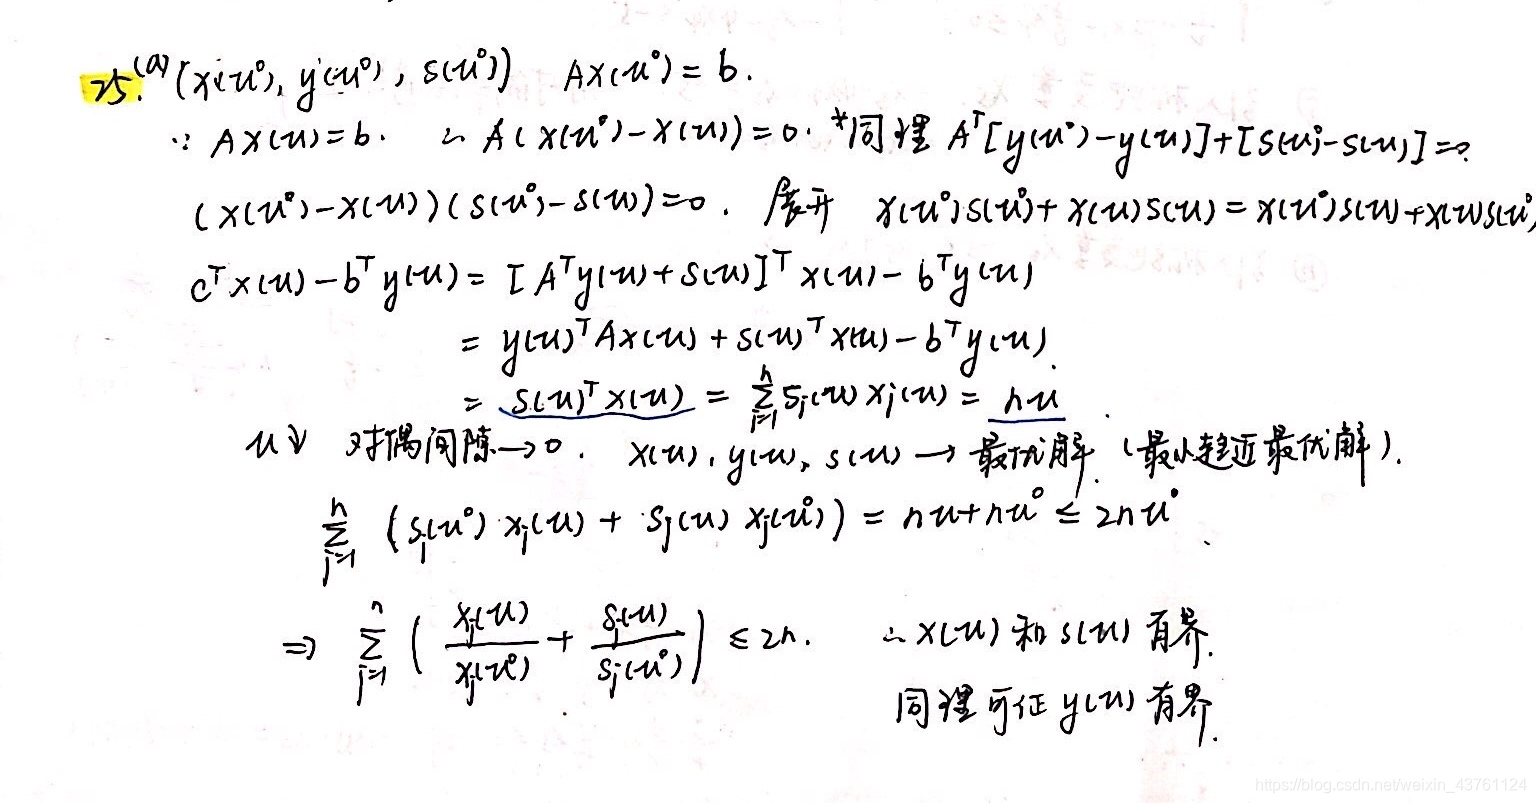 25.(a) (x(u⁰), y(u⁰), s(u⁰)) Ax(u⁰) = b.
∵ Ax(u) = b. ∴ A(x(u⁰) - x(u)) = 0. *同理 Aᵀ[y(u⁰) - y(u)] + [s(u⁰) - s(u)] = 0.
(x(u⁰) - x(u))(s(u⁰) - s(u)) = 0. 展开 x(u⁰)s(u⁰) + x(u)s(u) = x(u⁰)s(u) + x(u)s(u⁰)
cᵀx(u) - bᵀy(u) = [Aᵀy(u) + s(u)]ᵀ x(u) - bᵀy(u)
= y(u)ᵀAx(u) + s(u)ᵀx(u) - bᵀy(u).
= s(u)ᵀx(u) = ∑ⱼ₌₁ⁿ sⱼ(u)xⱼ(u) = nu.
u↓ 对偶间隙→0. x(u), y(u), s(u) → 最优解. (最小趋近最优解).
∑ⱼ₌₁ⁿ (sⱼ(u⁰) xⱼ(u) + sⱼ(u) xⱼ(u⁰)) = nu + nu⁰ ≤ 2nu⁰.
⇒ ∑ⱼ₌₁ⁿ (xⱼ(u)/xⱼ(u⁰) + sⱼ(u)/sⱼ(u⁰)) ≤ 2n. ∴ x(u) 和 s(u) 有界.
同理可证 y(u) 有界.
https://blog.csdn.net/weixin_43761124